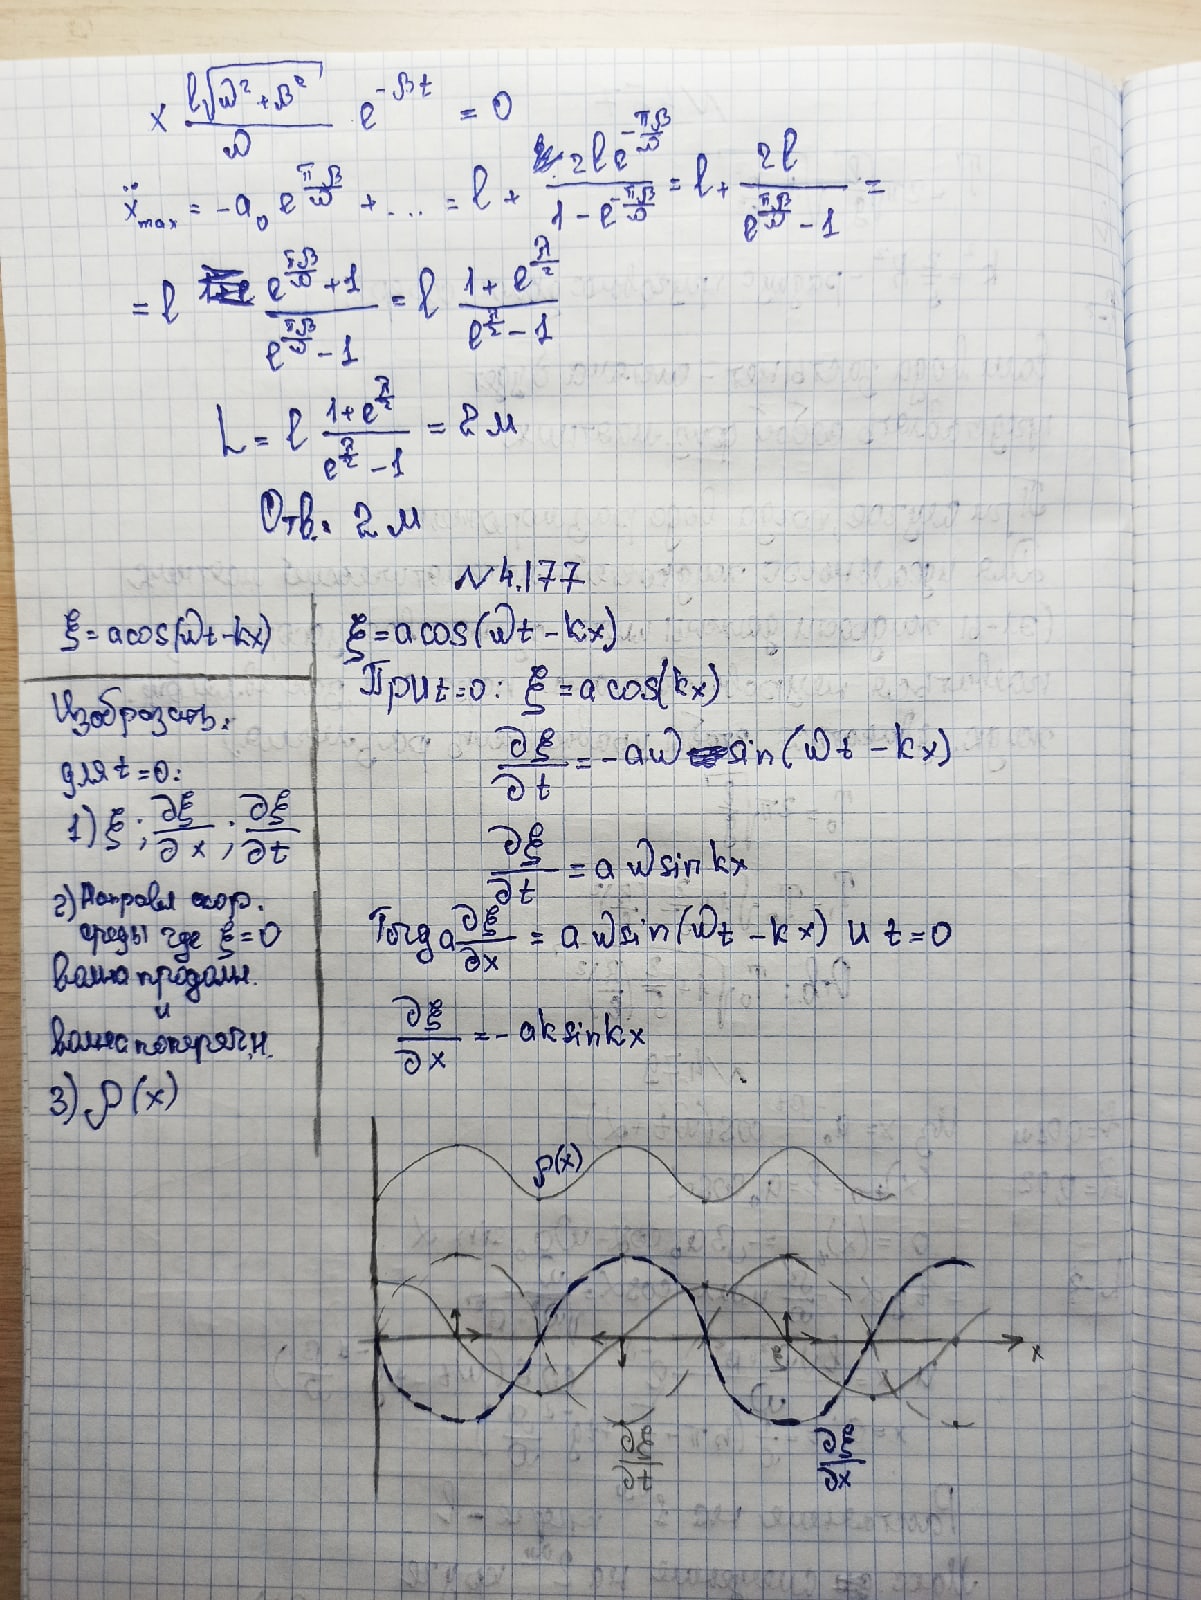 × l√(ω²+β²)/ω e^(-βt) = 0
ẍmax = -a₀ e^(πβ/ω) + ... = l + 2le^(-πβ/ω)/(1-e^(-πβ/ω)) = l + 2l/(e^(πβ/ω)-1) =
= l (e^(πβ/ω)+1)/(e^(πβ/ω)-1) = l (1+e^(π/2))/(e^(π/2)-1)
L = l (1+e^(π/2))/(e^(π/2)-1) = 2 м
Отв.: 2 м
№4.177
ξ=acos(ωt-kx)
Изобразить:
для t=0:
1) ξ; ∂ξ/∂x; ∂ξ/∂t
2) Направл скор.
среды где ξ=0
волна продольн.
и
волна поперечн.
3) ρ(x)
ξ=acos(ωt-kx)
При t=0: ξ=acos(kx)
∂ξ/∂t = -aω sin(ωt-kx)
∂ξ/∂t = aω sinkx
Тогда ∂ξ/∂x = aω sin(ωt-kx) и t=0
∂ξ/∂x = -ak sinkx
ρ(x)
x
ξ
∂ξ/∂t
∂ξ/∂x